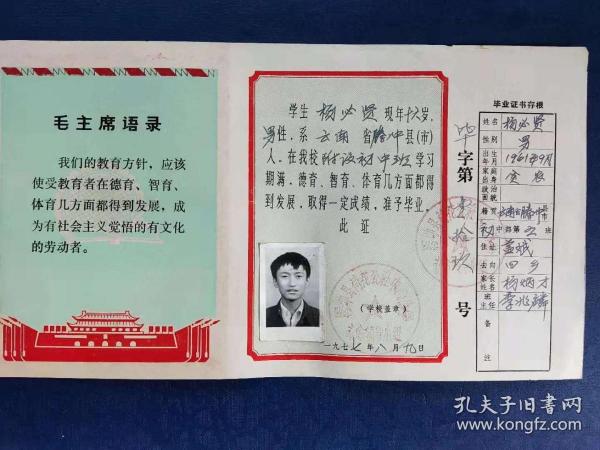 毛主席语录
我们的教育方针，应该
使受教育者在德育、智育、
体育几方面都得到发展，成
为有社会主义觉悟的有文化
的劳动者。
学生 杨必贤 现年十六岁，
男性，系 云南 省 腾冲 县（市）
人，在我校 附设初中班 学习
期满，德育、智育、体育几方面都得
到发展，取得一定成绩，准予毕业。
此证
（学校盖章）
一九七七年八月十九日
毕字第 壹拾玖 号
毕业证书存根
姓名 杨必贤
性别 男
出生年月 1961年9月
家庭出身 贫农
政治面貌
籍贯 云南省腾冲县市
初中部第 五 班
住址
去向 回乡
家长姓名 杨炳才
班主任 李兆
备注
孔夫子旧书网
www.kongfz.com